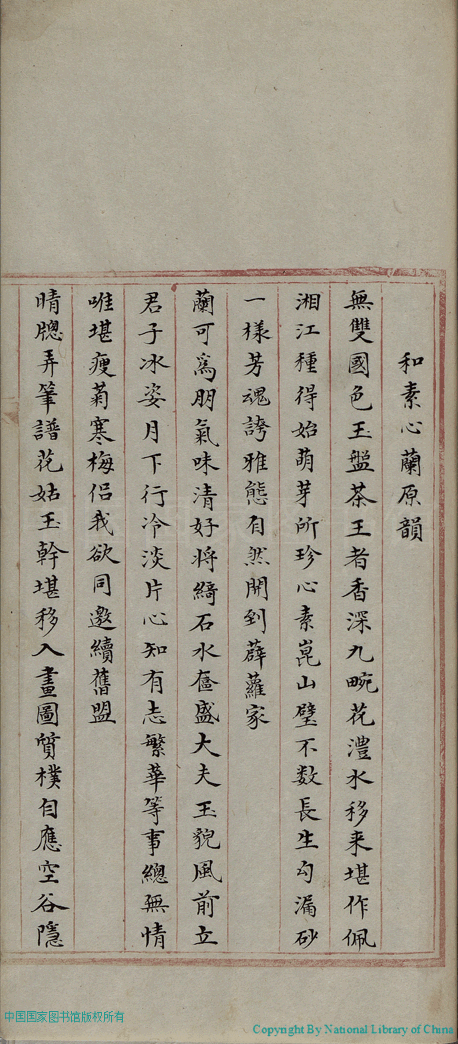 和素心蘭原韻
無雙國色玉盤茶王者香深九畹花澧水移来堪作佩
湘江種得始萌芽所珍心素崑山璧不数長生勾漏砂
一樣芳魂誇雅態自然開到薜蘿家
蘭可為朋氣味清好將綺石水奩盛大夫玉貌風前立
君子冰姿月下行冷淡片心知有志繁華等事總無情
唯堪瘦菊寒梅侶我欲同邀續舊盟
晴牕弄筆譜花姑玉幹堪移入畫圖質樸自應空谷隱
中国国家图书馆版权所有
Copyright By National Library of China